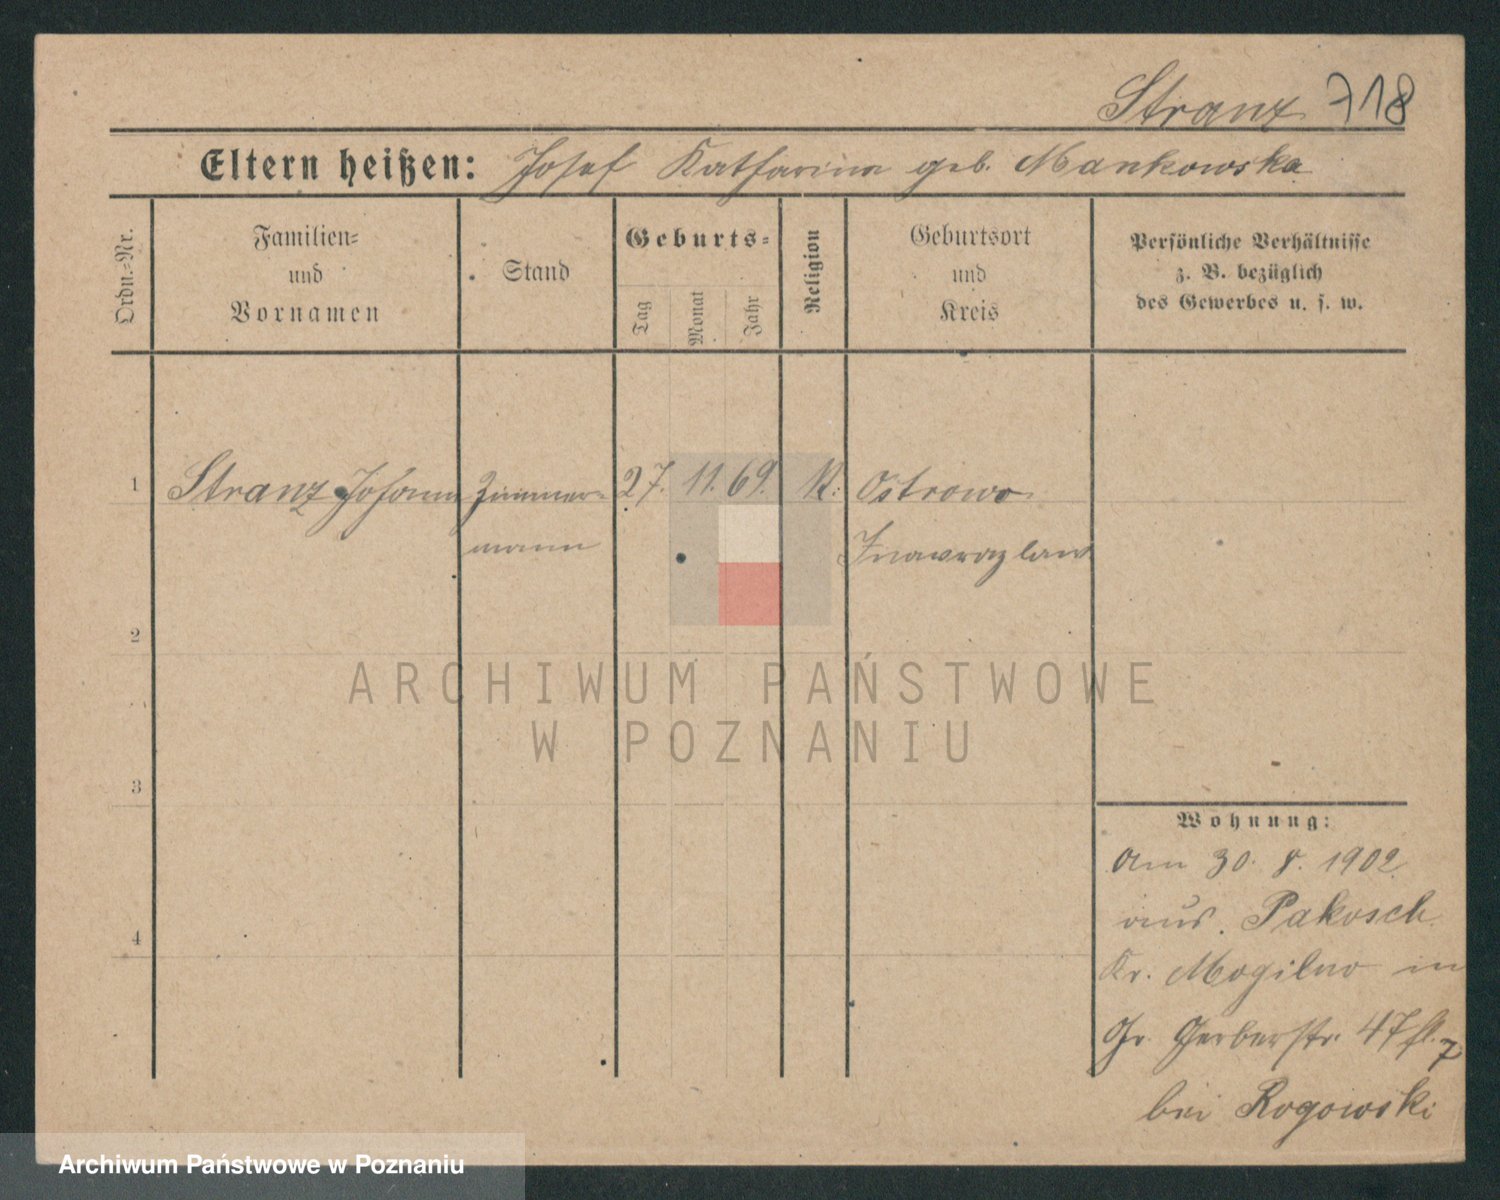 Stranz 718
Eltern heißen: Josef Katharina geb. Mankowska
Ordn.-Nr.
Familien-
und
Vornamen
Stand
Geburts-
Tag
Monat
Jahr
Religion
Geburtsort
und
Kreis
Persönliche Verhältnisse
z. B. bezüglich
des Gewerbes u. s. w.
1 Stranz Johann Zimmer- 27. 11. 69. K. Ostrowo
mann Inowrazlaw
2
3
4
Wohnung:
Am 30. 8. 1902
aus Pakosch
Kr. Mogilno in
Gr. Gerberstr. 47
bei Rogowski
ARCHIWUM PAŃSTWOWE
W POZNANIU
Archiwum Państwowe w Poznaniu